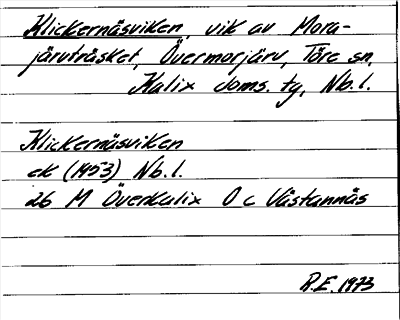 Klickernäsviken, vik av Mora-
järvträsket, Övermorjärv, Töre sn,
Kalix doms. tg, Nb. l.
Klickernäsviken
ek (1953) Nb. l.
26 M Överkalix O c Västannäs
R.E. 1973